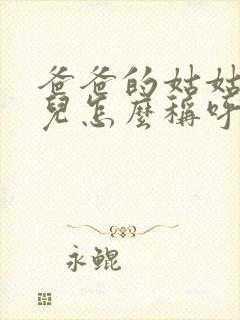 爸爸的姑姑
兒怎麼稱呼
永鯤